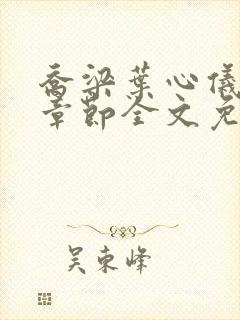 乔梁叶心仪
章节全文免
吴东峰